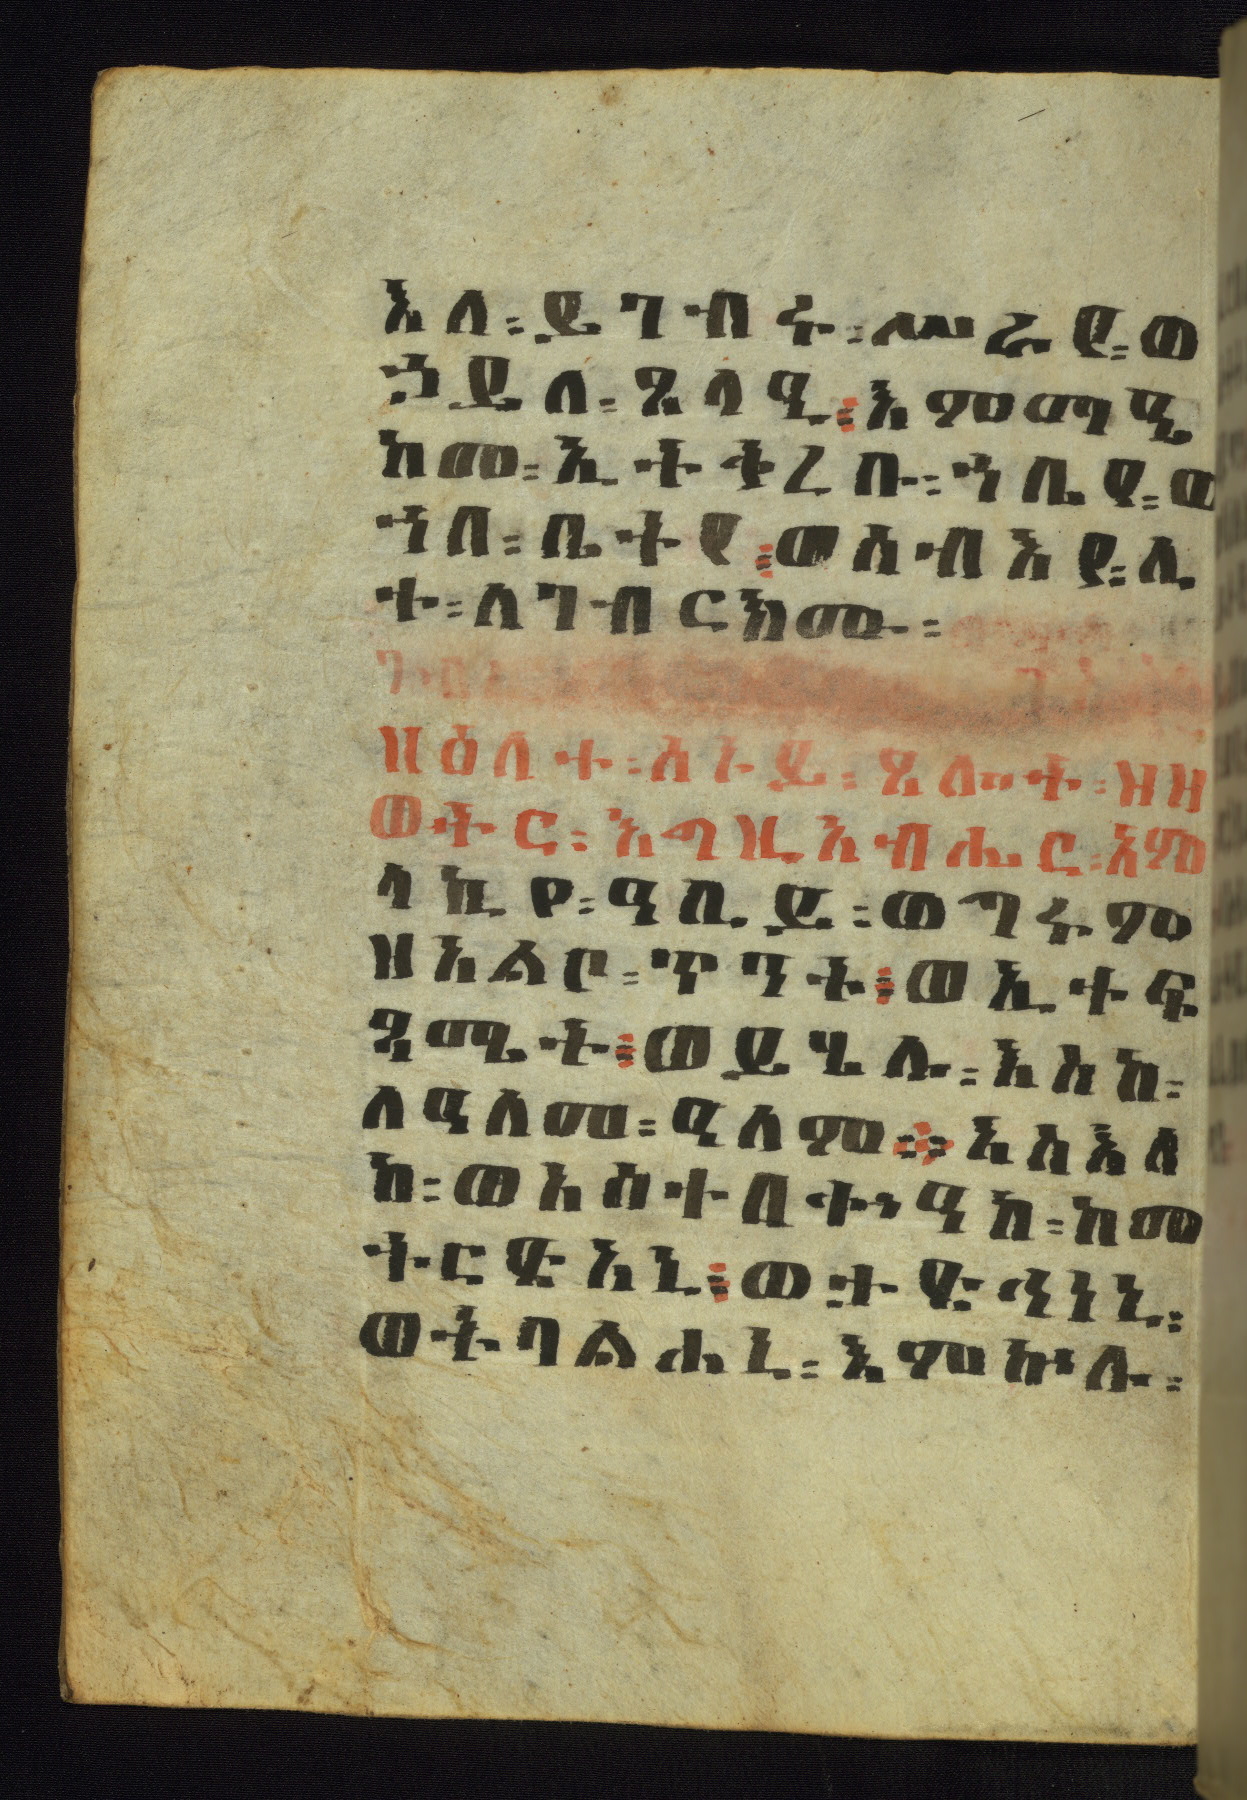 እለ፡ይገብሩ፡ሠራዊ፡ወ
ኃይለ፡ጸላዒ፡እምማዒ
ከመ፡ኢትቅረቡ፡ኀቤየ፡ወ
ኀበ፡ቤትየ፡ወአብእየ፡ሊ
ተ፡ለገብርክሙ፡
ዘዕለተ፡ሰኑይ፡ጸሎት፡ዝዘ
ወትር፡እግዚአብሔር፡እም
ላኪየ፡ዓቢይ፡ወግሩም
ዘአልቦ፡ጥንተ፡ወኢተፍ
ጻሜተ፡ወይሄሉ፡እስከ፡
ለዓለመ፡ዓለም፡እስእለ
ከ፡ወአስተበቍዓከ፡ከመ
ትርድአኒ፡ወትድኅነኒ፡
ወትባልሐኒ፡እምኵሉ፡